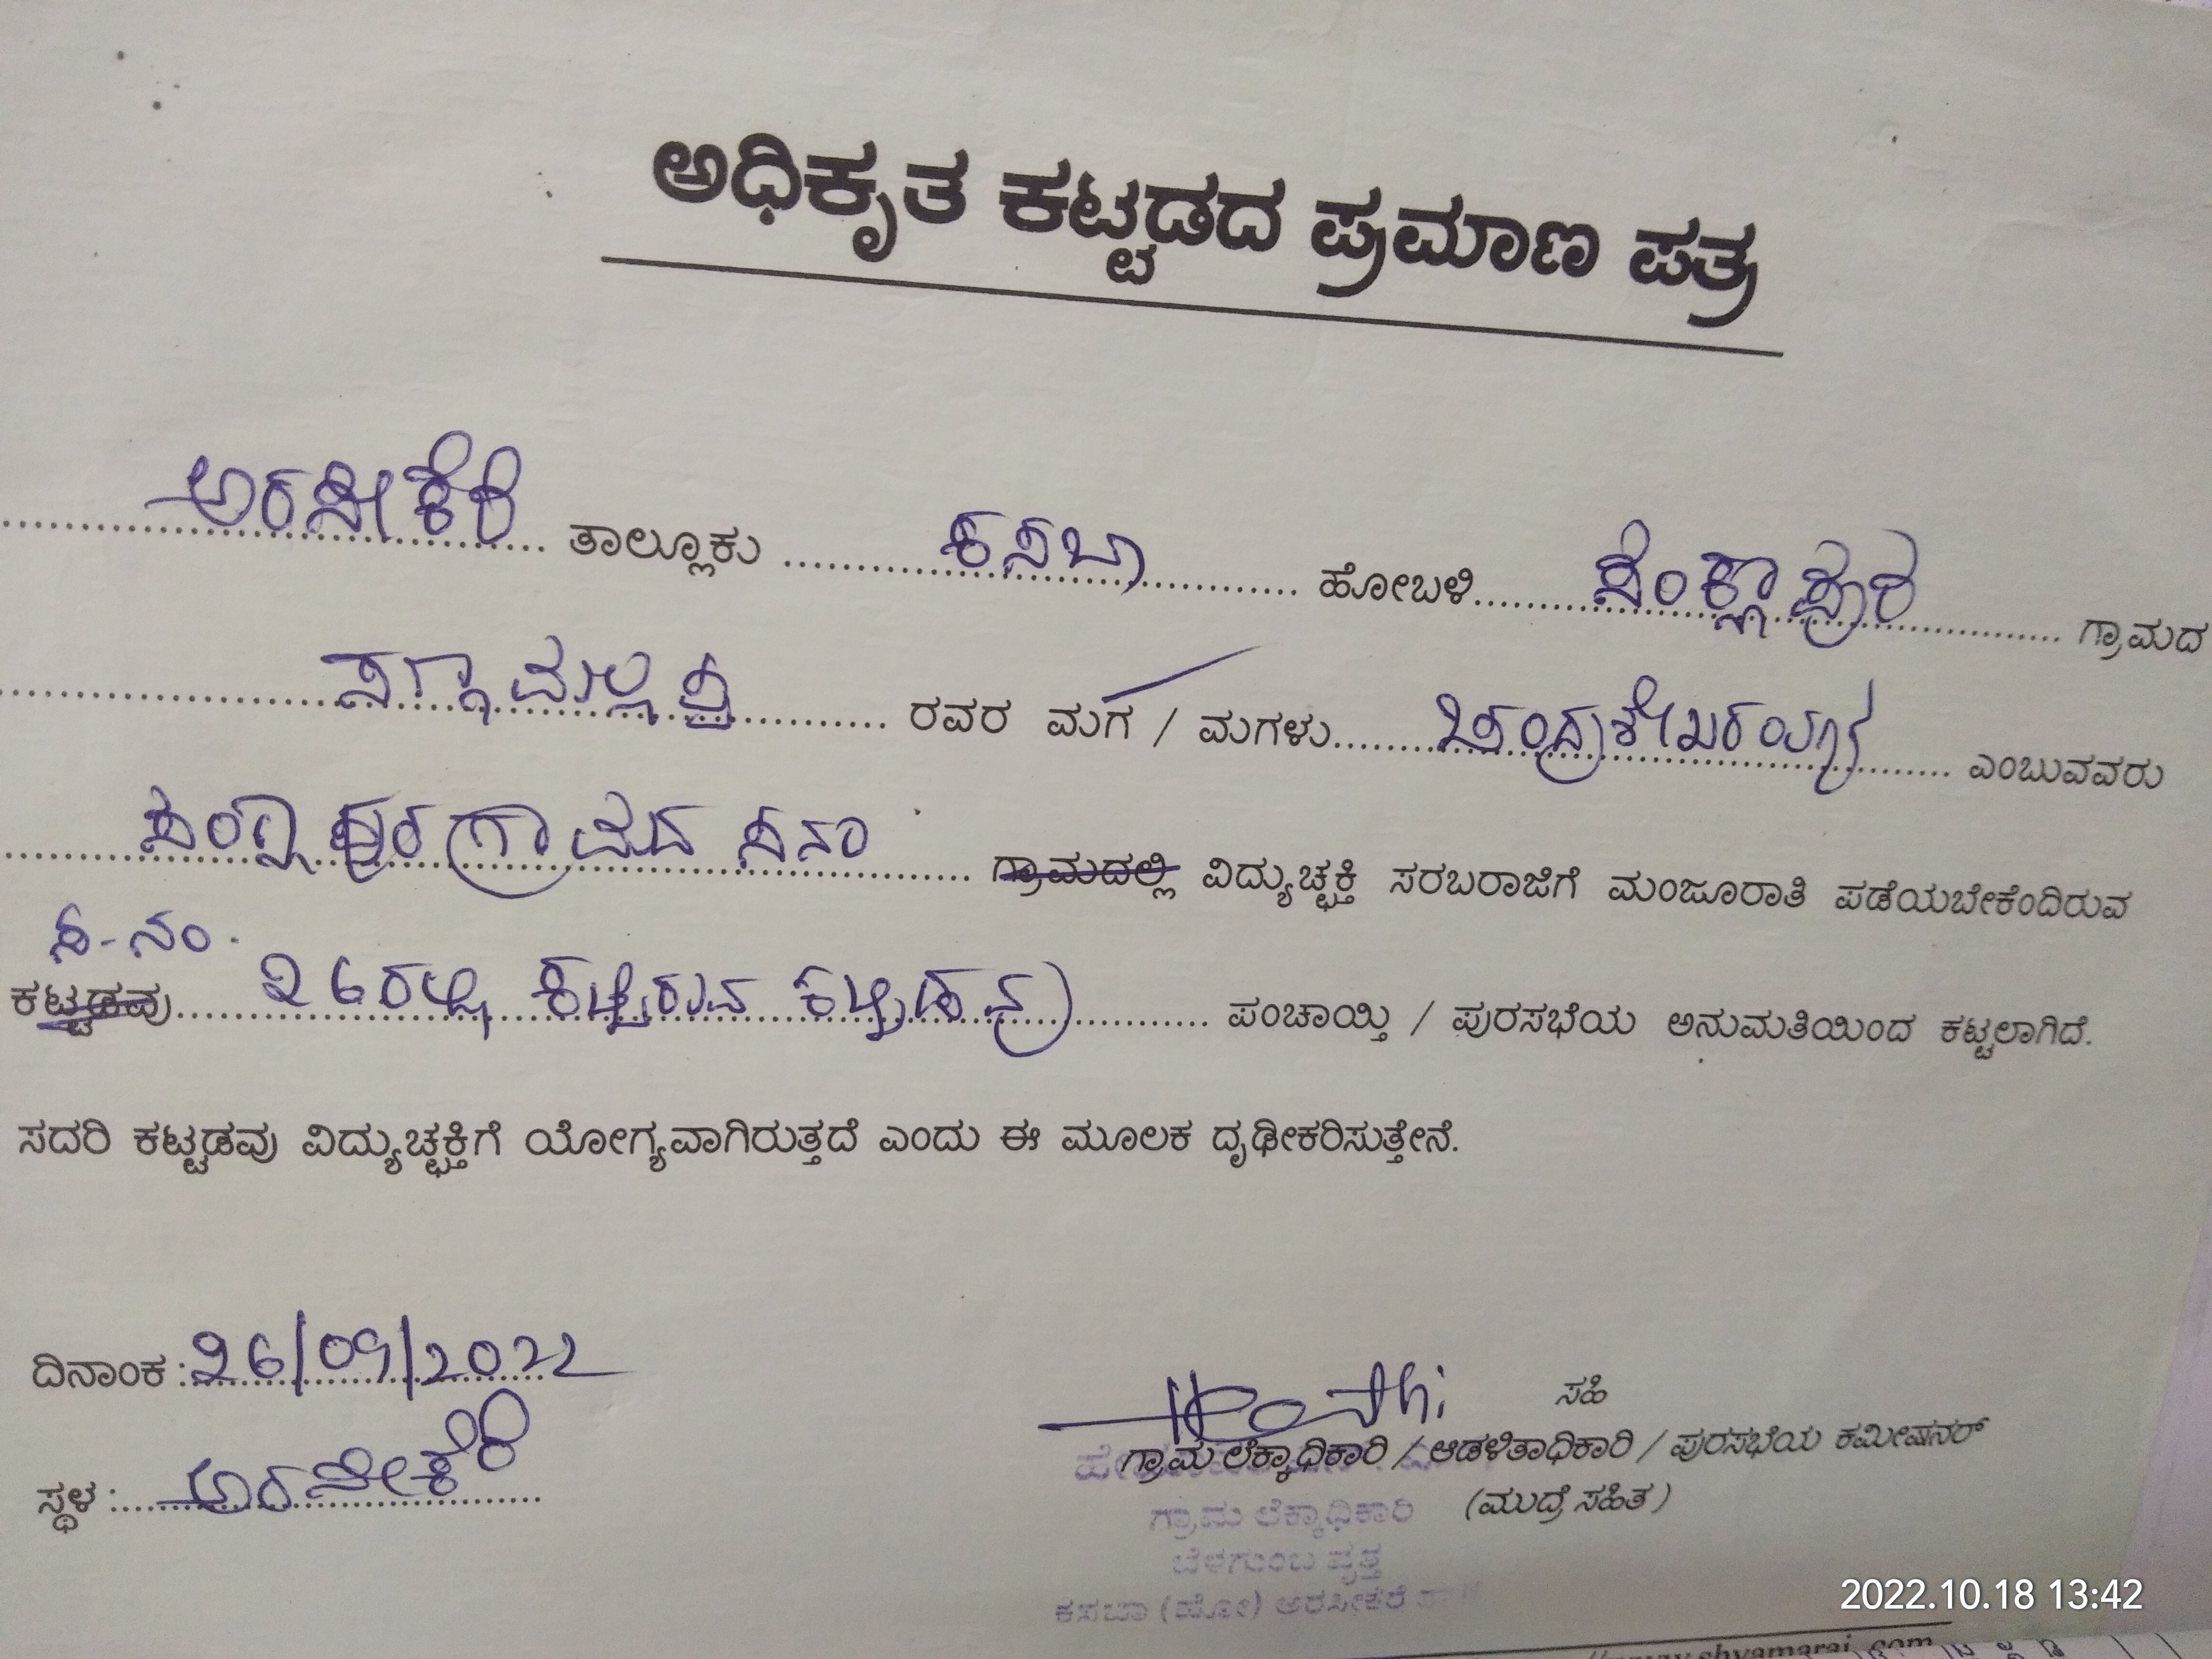 ಅಧಿಕೃತ ಕಟ್ಟಡದ ಪ್ರಮಾಣ ಪತ್ರ
ಅರಸೀಕೆರೆ ತಾಲ್ಲೂಕು ಕಸಬಾ ಹೋಬಳಿ ಗ್ರಾಮದ
ರವರ ಮಗ / ಮಗಳು ಚಂದ್ರಶೇಖರಯ್ಯ ಎಂಬುವವರು
ಗ್ರಾಮದ ಗ್ರಾಮದಲ್ಲಿ ವಿದ್ಯುಚ್ಛಕ್ತಿ ಸರಬರಾಜಿಗೆ ಮಂಜೂರಾತಿ ಪಡೆಯಬೇಕೆಂದಿರುವ
ಸ-ನಂ.
ಕಟ್ಟಡವು 26ರಲ್ಲಿ ಕಟ್ಟಿರುವ ಕಟ್ಟಡವು ಪಂಚಾಯ್ತಿ / ಪುರಸಭೆಯ ಅನುಮತಿಯಿಂದ ಕಟ್ಟಲಾಗಿದೆ.
ಸದರಿ ಕಟ್ಟಡವು ವಿದ್ಯುಚ್ಛಕ್ತಿಗೆ ಯೋಗ್ಯವಾಗಿರುತ್ತದೆ ಎಂದು ಈ ಮೂಲಕ ದೃಢೀಕರಿಸುತ್ತೇನೆ.
ದಿನಾಂಕ : 26/09/2022
ಸಹಿ
ಗ್ರಾಮ ಲೆಕ್ಕಾಧಿಕಾರಿ / ಆಡಳಿತಾಧಿಕಾರಿ / ಪುರಸಭೆಯ ಕಮೀಷನರ್
ಸ್ಥಳ : ಅರಸೀಕೆರೆ
(ಮುದ್ರೆ ಸಹಿತ)
ಗ್ರಾಮ ಲೆಕ್ಕಾಧಿಕಾರಿ
ಬೆಳಗುಂಬ ವೃತ್ತ
ಕಸಬಾ (ಹೋ) ಅರಸೀಕೆರೆ
2022.10.18 13:42